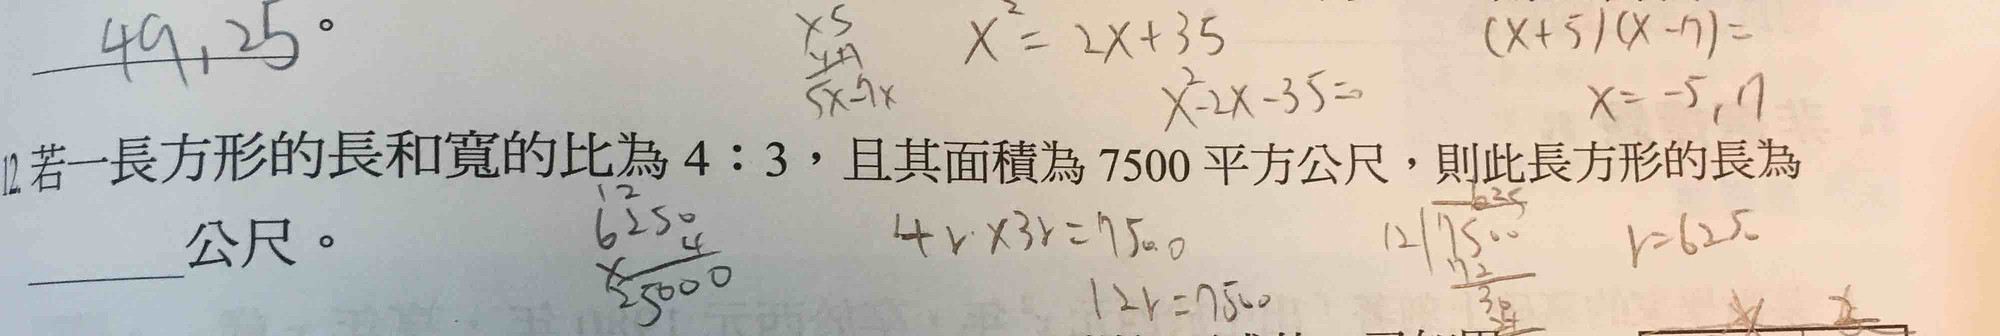 49,25。
x5
5x-7x
x²= 2x+35
x²-2x-35=0
(x+5)(x-7)=
x= -5,7
12.若一長方形的長和寬的比為 4:3,且其面積為 7500 平方公尺,則此長方形的長為
______公尺。
12
6250
x 4
25000
4r×3r=7500
12r=7500
625
12/7500
72
30
r=6250